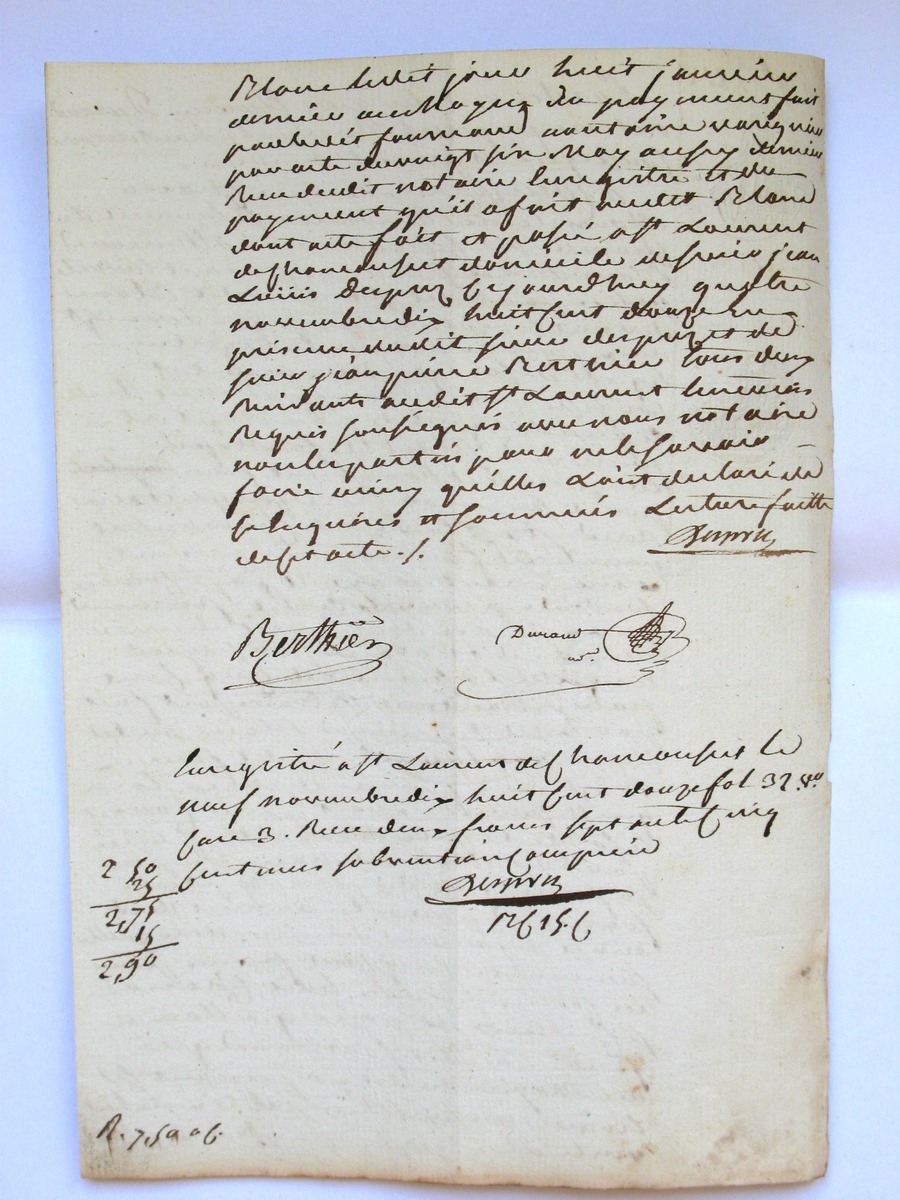 Blanc ledit jour huit janvier
dernier au moyen du payement fait
par
par acte du vingt six May aussy dernier
Reçu dudit notaire Enregistré et du
payement qu'il a fait audit Blanc
dont acte fait et passé a St Laurent
de Chamousset domicile de sieur jean
Louis Despraz Cejourdhuy quatre
novembre dix huit Cent douze En
présence dudit sieur despraz et de
sieur jean pierre Berthier tous deux
Residants audit St Laurent temoins
Requis soussignés avec nous notaire
non les parties pour ne le Savoir
faire ainsy qu'elles L'ont declaré de
ce Enquises et sommées Lecture faitte
de cet acte ./.
Berthier
Durand
nre
Enregistré a St Laurent de Chamousset Le
neuf novembre dix huit Cent douze fol 32 Vo
Case 3. Recu deux francs septante Cinq
Centimes subvention Comprise
2 50
25
2,75
15
2,90
R. 7,50